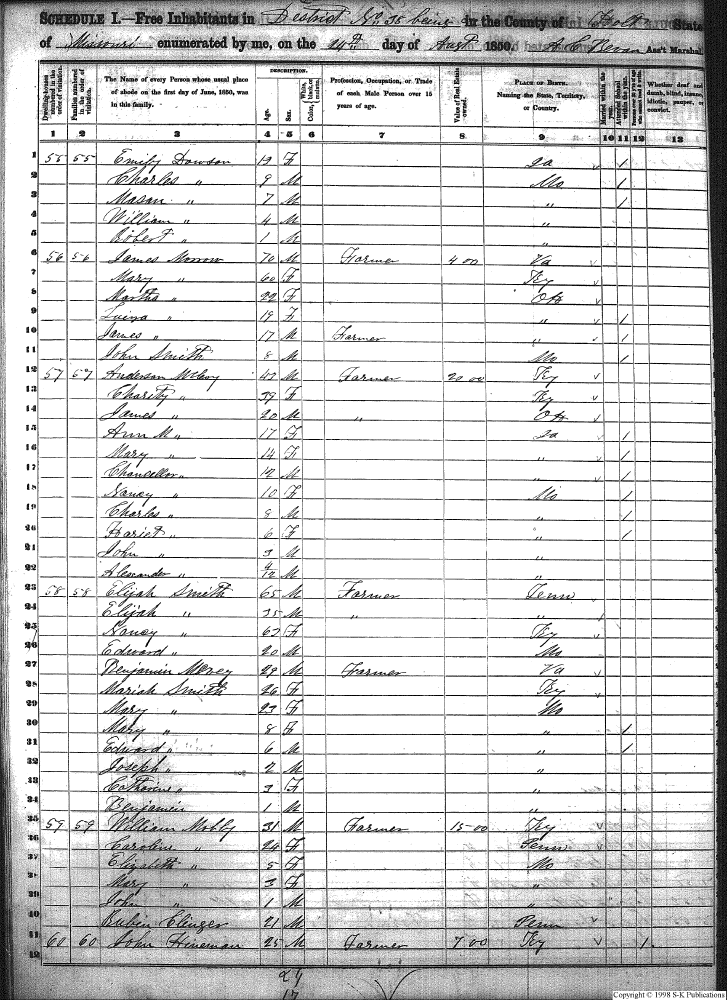 SCHEDULE I.—Free Inhabitants in District No 35 being in the County of Holt State
of Missouri enumerated by me, on the 24th day of Augt 1850. Ass't Marshal
Dwelling-houses numbered in the order of visitation.
Families numbered in the order of visitation.
The Name of every Person whose usual place of abode on the first day of June, 1850, was in this family.
DESCRIPTION.
Age.
Sex.
Color, White, black, or mulatto.
Profession, Occupation, or Trade of each Male Person over 15 years of age.
Value of Real Estate owned.
PLACE OF BIRTH. Naming the State, Territory, or Country.
Married within the year.
Attended School within the year.
Whether deaf and dumb, blind, insane, idiotic, pauper, or convict.
1 2 3 4 5 6 7 8 9 10 11 12 13
1 55 55 Emily Dawson 19 F Ia /
2 Charles " 9 M Mo /
3 Mason " 7 M " /
4 William " 4 M "
5 Robert " 1 M "
6 56 56 James Morrow 70 M Farmer 400 Va
7 Mary " 60 F Ky
8 Martha " 22 F
9 19 F " /
10 James " 17 M Farmer " /
11 John Smith 8 M Mo /
12 57 57 Anderson 47 M Farmer 2000 Ky
13 Charity " 39 F Ky
14 James " 20 M "
15 Ann M " 17 F Ia /
16 Mary " 14 F " /
17 Chancellor " 12 M " /
18 Nancy " 10 F Mo /
19 Charles " 8 M " /
20 Hariet " 6 F " /
21 John " 3 M "
22 Alexander " 4/12 M "
23 58 58 Elijah Smith 65 M Farmer Tenn
24 Elijah " 35 M " "
25 Nancy " 62 F Ky
26 Edward " 20 M Mo
27 Benjamin 29 M Farmer Va
28 Mariah Smith 26 F Ky
29 Mary " 23 F Mo
30 Mary " 8 F " /
31 Edward " 6 M " /
32 Joseph " 2 M "
33 Catharine " 3 F "
34 Benjamin 1 M "
35 59 59 William Mobly 31 M Farmer 1500 Ky
36 Caroline " 24 F
37 Elizabeth " 5 F Mo
38 Mary " 3 F "
39 John " 1 M "
40 Rubin Clinger 21 M Penn
41 60 60 John Hineman 25 M Farmer 700 Ky /
42
24
17
Copyright © 1998 S-K Publications